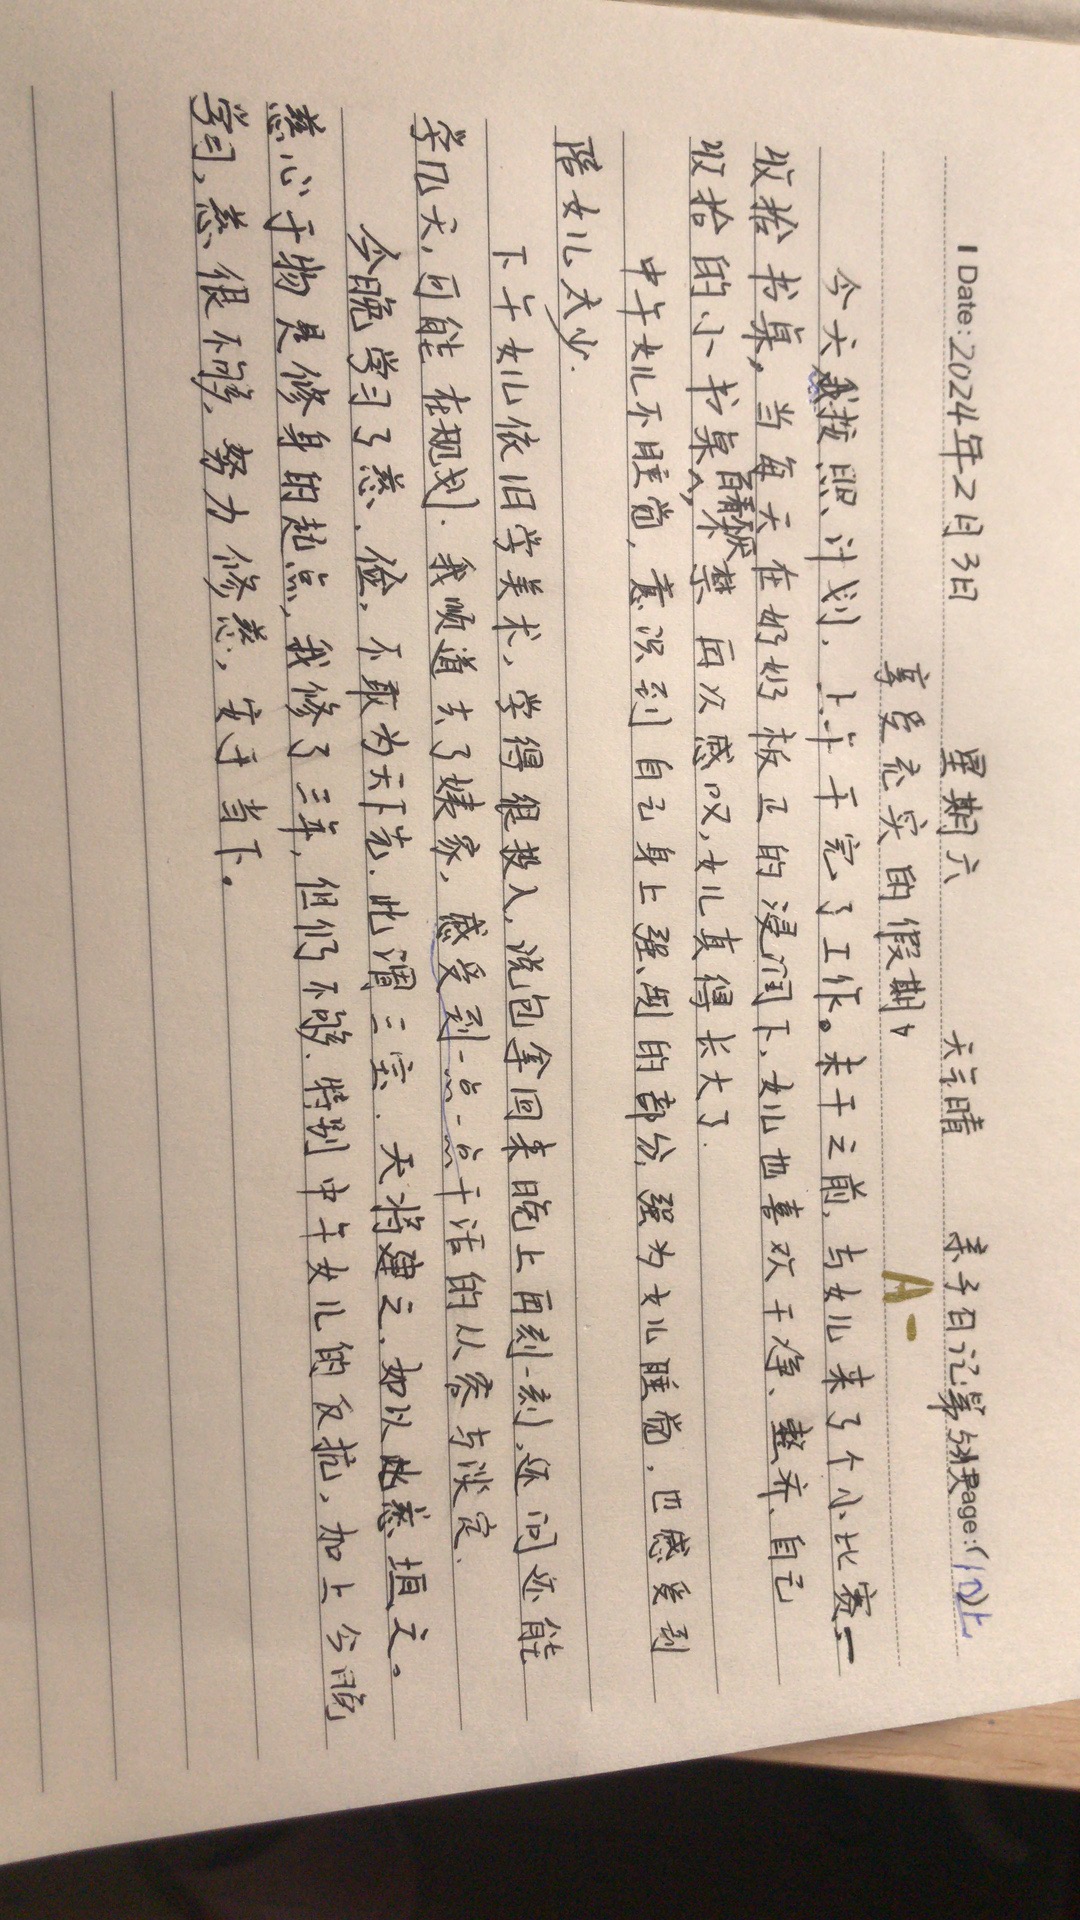 Date: 2024年2月3日 星期六 天气晴 亲子日记第 Page: (10)上
享受充实的假期 A-
今天我按照计划，上午干完了工作。未干之前，与女儿来了个小比赛一
收拾书桌，当每天在好好板正的浸润下，女儿也喜欢干净、整齐、自己
收拾的小书桌，不禁回次感叹，女儿真得长大了.
中午女儿不睡觉，意识到自己身上强制的部分，强为女儿睡觉，也感受到
陪女儿太少.
下午女儿依旧学美术，学得很投入，说包拿回来晚上再刻一刻，还问还能
学几天，可能在规划. 我顺道去了姨家，感受到一点一点干活的从容与淡定.
今晚学习了慈、俭，不敢为天下先. 此谓三宝. 天将建之，如以慈垣之。
慈心于物是修身的起点，我修了三年，但仍不够. 特别中午女儿的反抗，加上今晚
学习，慈很不够，努力修慈，安于当下。